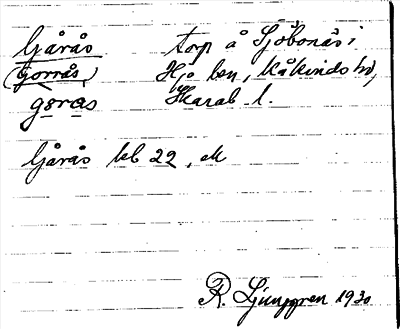 Gårås torp å Sjöbonäs i
(Gorrås) Hjo lsn, Kåkinds hd,
goras Skarab. l.
Gårås kbl 22, ek
R. Ljunggren 1930